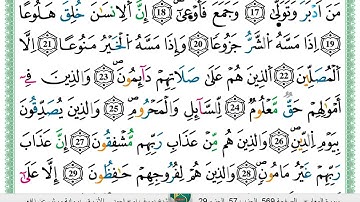 مَنْ أَدْبَرَ وَتَوَلَّىٰ (17) وَجَمَعَ فَأَوْعَىٰ (18) إِنَّ الْإِنسَانَ خُلِقَ هَلُوعًا
(19) إِذَا مَسَّهُ الشَّرُّ جَزُوعًا (20) وَإِذَا مَسَّهُ الْخَيْرُ مَنُوعًا (21) إِلَّا
الْمُصَلِّينَ (22) الَّذِينَ هُمْ عَلَىٰ صَلَاتِهِمْ دَائِمُونَ (23) وَالَّذِينَ فِي
أَمْوَالِهِمْ حَقٌّ مَّعْلُومٌ (24) لِّلسَّائِلِ وَالْمَحْرُومِ (25) وَالَّذِينَ يُصَدِّقُونَ
بِيَوْمِ الدِّينِ (26) وَالَّذِينَ هُم مِّنْ عَذَابِ رَبِّهِم مُّشْفِقُونَ (27) إِنَّ عَذَابَ
رَبِّهِمْ غَيْرُ مَأْمُونٍ (28) وَالَّذِينَ هُمْ لِفُرُوجِهِمْ حَافِظُونَ (29) إِلَّا عَلَىٰ
الصفحة 569 الحزب 57 الجزء 29